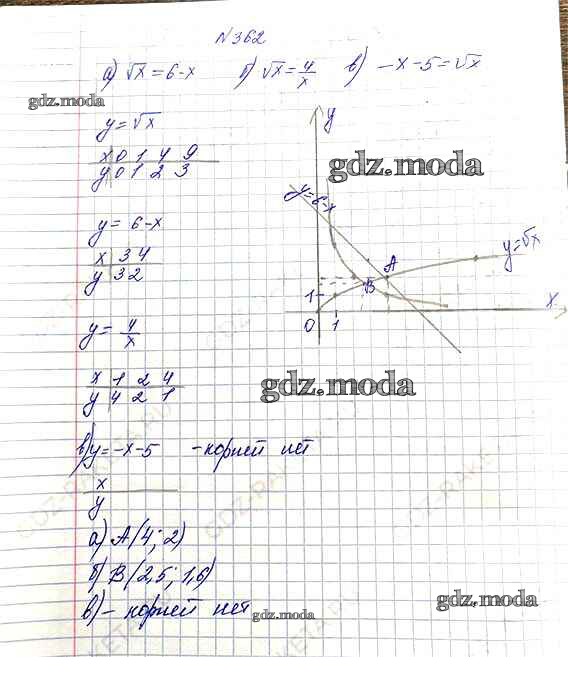 №362
а) √x = 6-x б) √x = 4/x в) -x-5 = √x
gdz.moda
y = √x
x 0 1 4 9
y 0 1 2 3
y = 6-x
x 3 4
y 3 2
y = 4/x
x 1 2 4
y 4 2 1
y
gdz.moda
y=6-x
y=√x
A
B
x
1
0 1
gdz.moda
в) y = -x-5 - корней нет
x
y
а) A(4; 2)
б) B(2,5; 1,6)
в) - корней нет
gdz.moda
gdz.moda
GDZ-RAKETA.RU
GDZ-RAKETA.RU